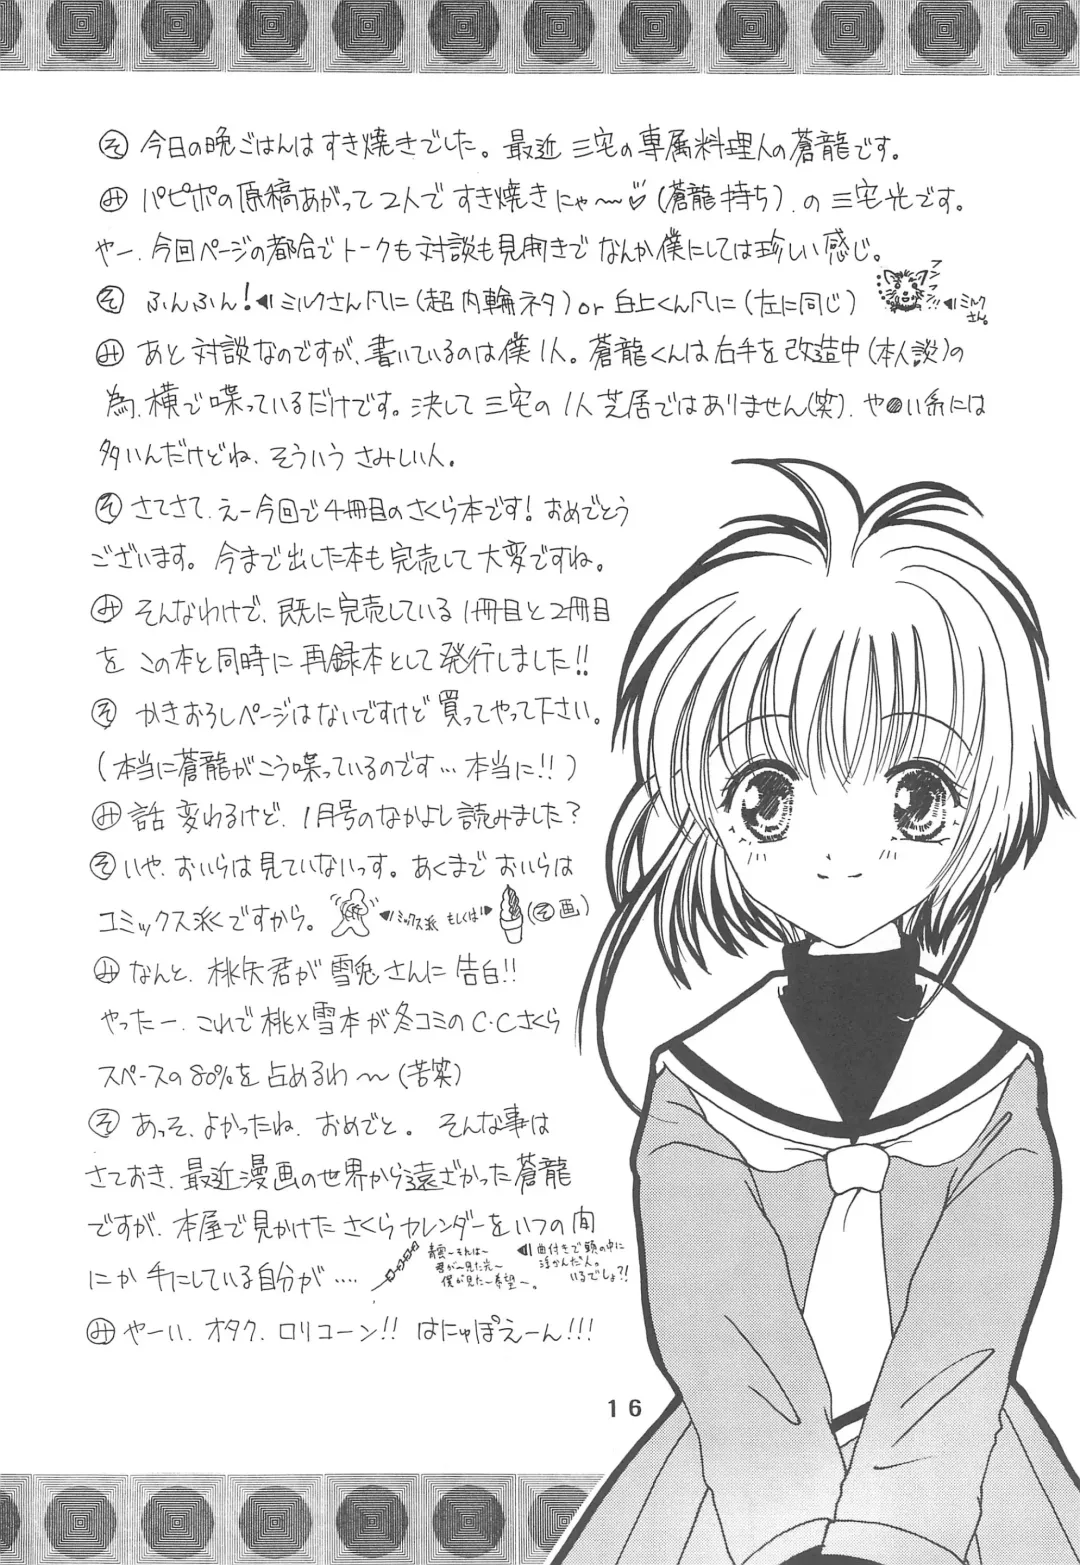 そ 今日の晩ごはんはすき焼きでした。最近三宅の専属料理人の蒼龍です。
み パピポの原稿あがって2人ですき焼きにゃ〜♡(蒼龍持ち)、の三宅光です。
やー、今回ページの都合でトークも対談も見開きでなんか僕にしては珍しい感じ。
そ ふんふん!◀ミルクさん風に(超内輪ネタ)or 白上くん風に(左に同じ)
◀ミルクさん。
み あと対談なのですが、書いているのは僕1人。蒼龍くんは右手を改造中(本人談)の
為、横で喋っているだけです。決して三宅の1人芝居ではありません(笑)、や●い系には
多いんだけどね、そういうさみしい人。
そ さてさて、えー今回で4冊目のさくら本です!おめでとう
ございます。今まで出した本も完売して大変ですね。
み そんなわけで、既に完売している1冊目と2冊目
をこの本と同時に再録本として発行しました!!
そ かきおろしページはないですけど買ってやって下さい。
(本当に蒼龍がこう喋っているのです…本当に!!)
み 話変わるけど、1月号のなかよし読みました?
そ いや、おいらは見ていないっす。あくまでおいらは
コミックス派ですから。◀コミックス派 もしくは▶(そ画)
み なんと、桃矢君が雪兎さんに告白!!
やったー、これで桃×雪本が冬コミのC・Cさくら
スペースの80%を占めるわ〜(苦笑)
そ あっそ、よかったね、おめでと。そんな事は
さておき、最近漫画の世界から遠ざかった蒼龍
ですが、本屋で見かけたさくらカレンダーをいつの間
にか手にしている自分が‥‥
青雲〜それは〜
君が〜見た光〜
僕が見た〜希望〜。
◀曲付きで頭の中に
浮かんだ人。
いるでしょ?!
み やーい、オタク、ロリコーン!!はにゃぽえーん!!!
16